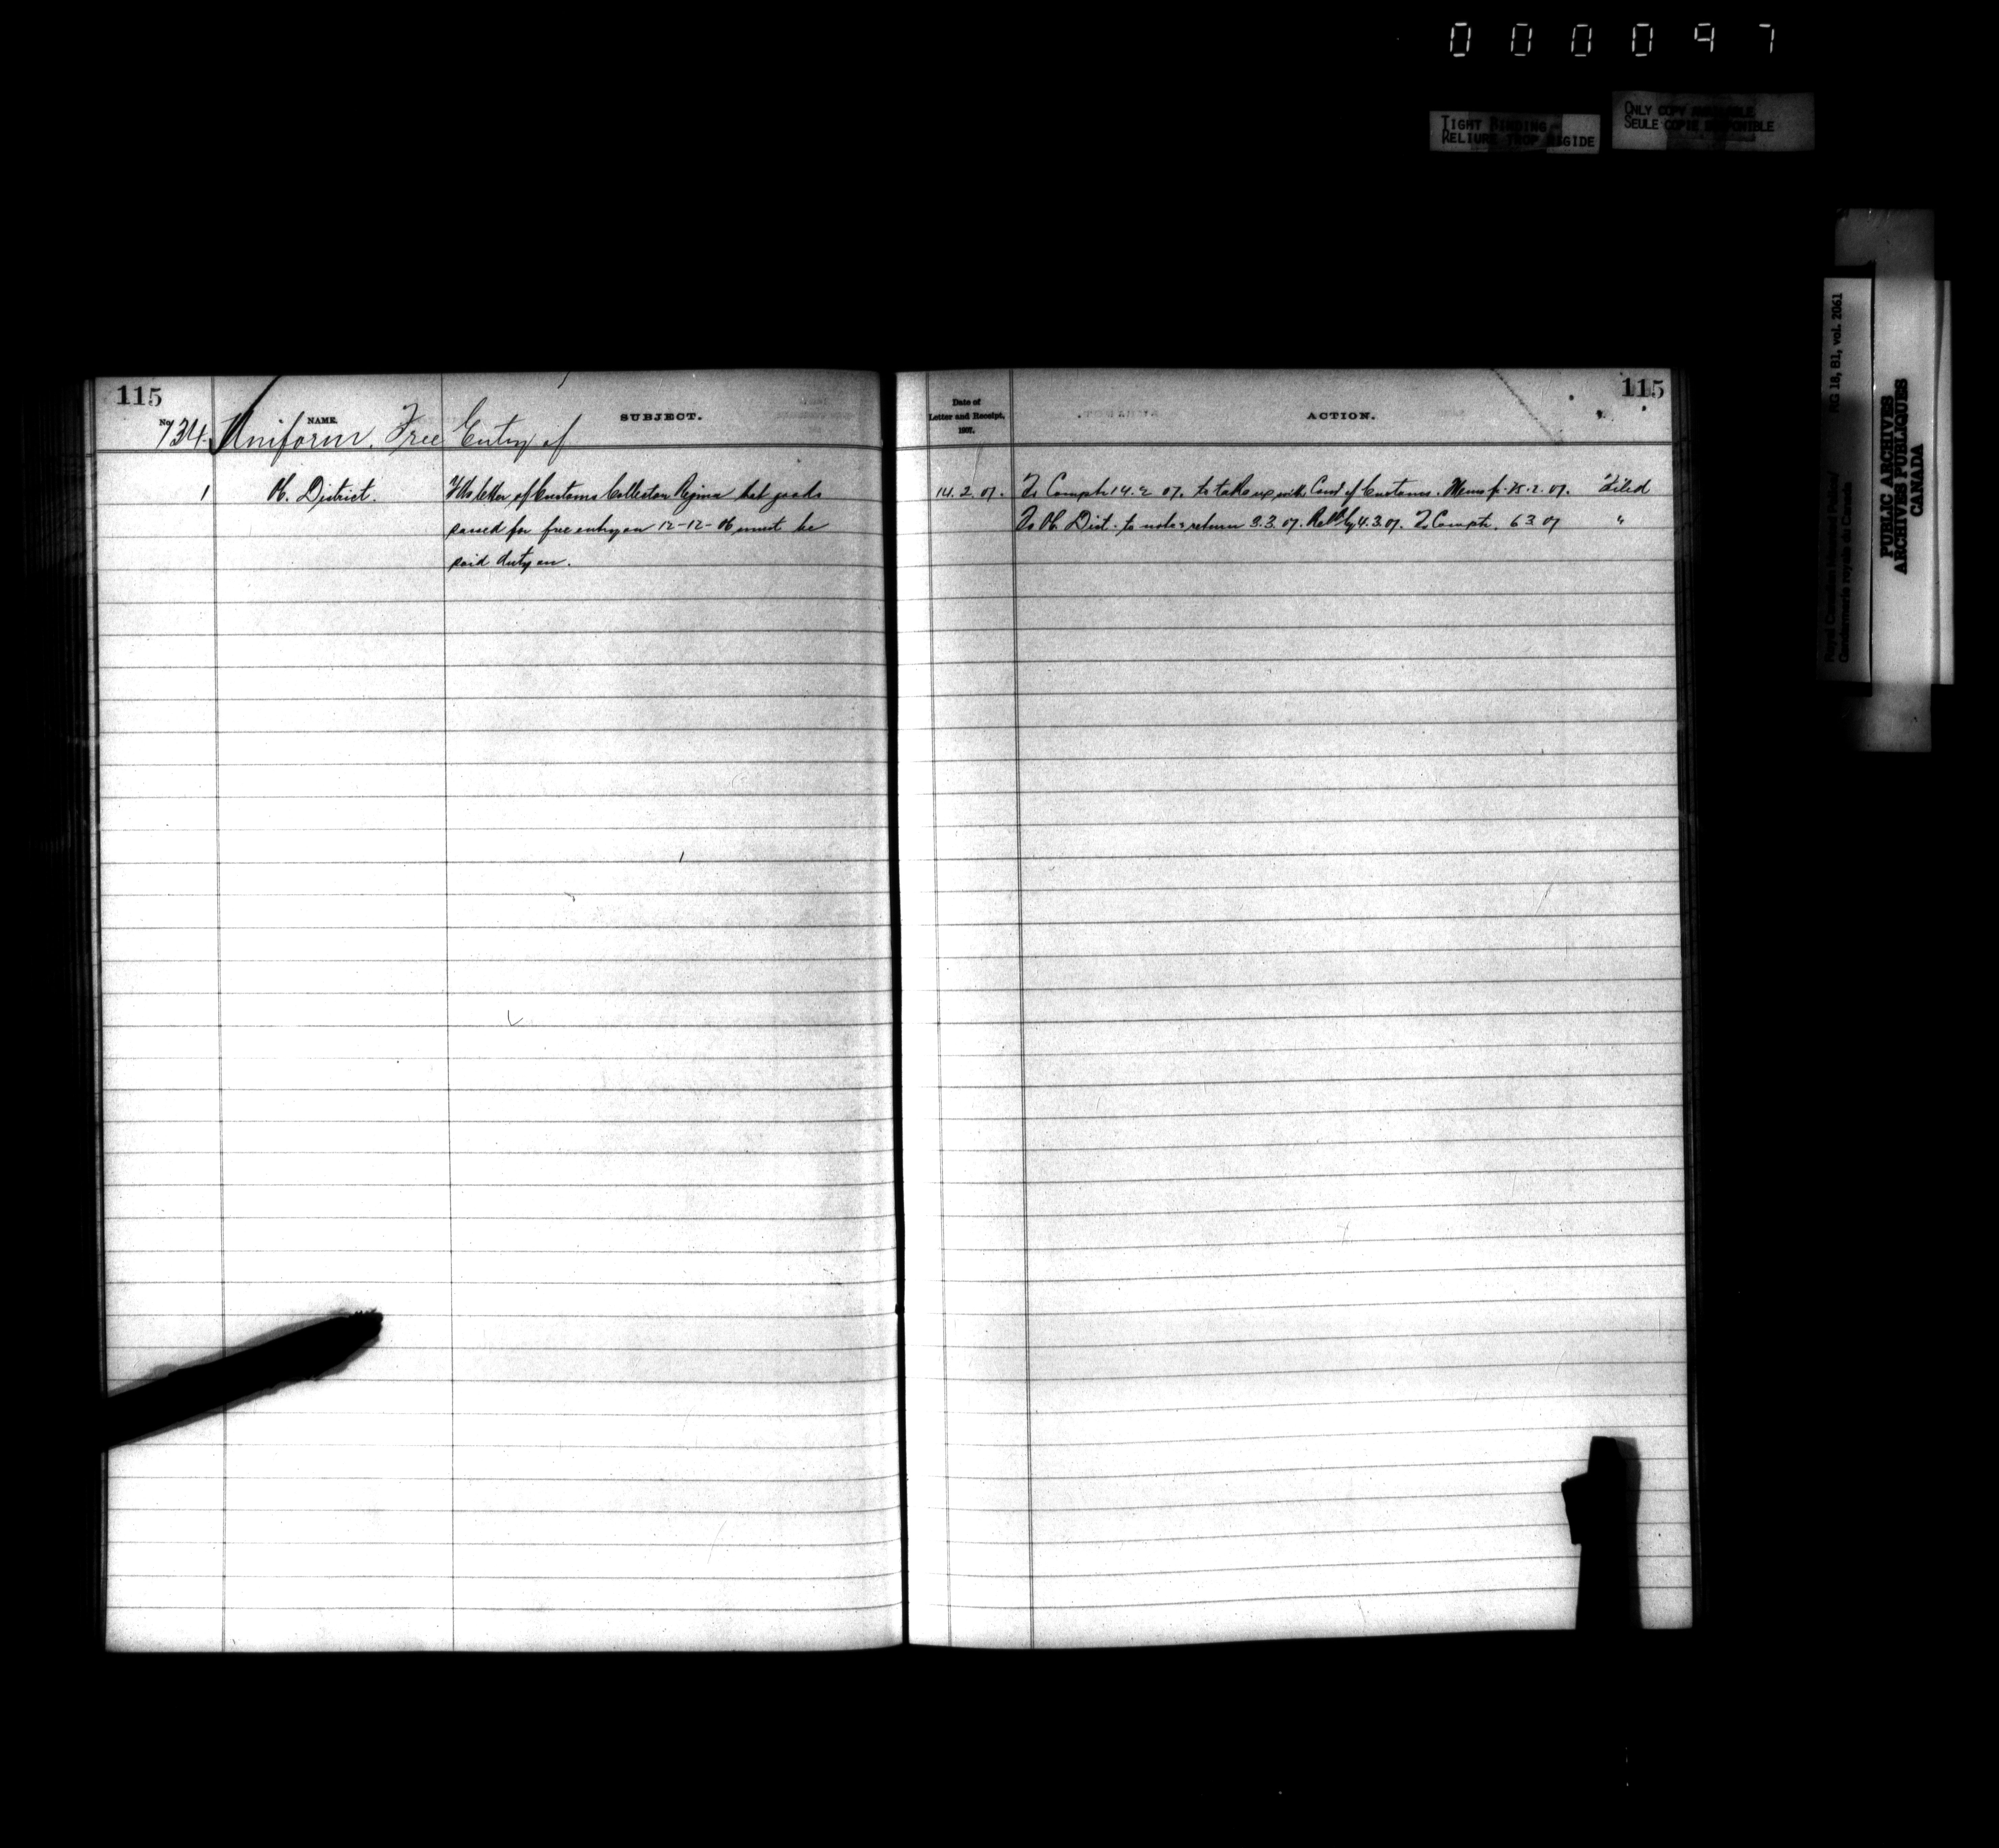 000097
TIGHT BINDING
RELIURE TROP RIGIDE
ONLY COPY AVAILABLE
SEULE COPIE DISPONIBLE
RG 18, B1, vol. 2061
Royal Canadian Mounted Police/
Gendarmerie royale du Canada
PUBLIC ARCHIVES
ARCHIVES PUBLIQUES
CANADA
115
No. NAME. SUBJECT.
734 Uniform. Free Entry of
1 District. letter of Customs Collector Regina that goods
passed for free entry on 12-12-06 must be
paid duty on.
115
Date of
Letter and Receipt,
1907.
ACTION.
14.2.07. To Comptr 14.2.07. to take up with Comr of Customs. Memo fr. 25.2.07. Filed
To Dist. to note & return 3.3.07. 4.3.07. To Comptr. 6 3 07 "